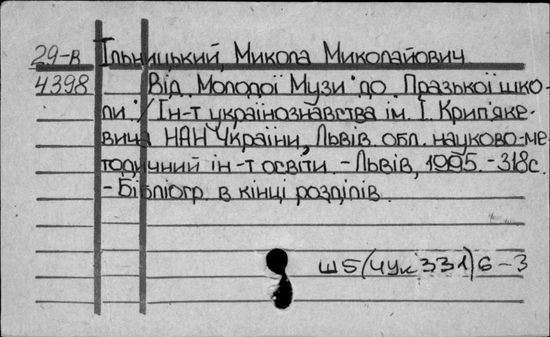 29-в Ільницький, Микола Миколайович
4398 Від "Молодої Музи" до Празької шко-
ли. / Ін-т українознавства ім. І. Крип'яке-
вича НАН України, Львів. обл. науково-ме-
тодичний ін-т освіти. - Львів, 1995. - 318с.
- Бібліогр. в кінці розділів.
Ш5(4Ук331)6-3